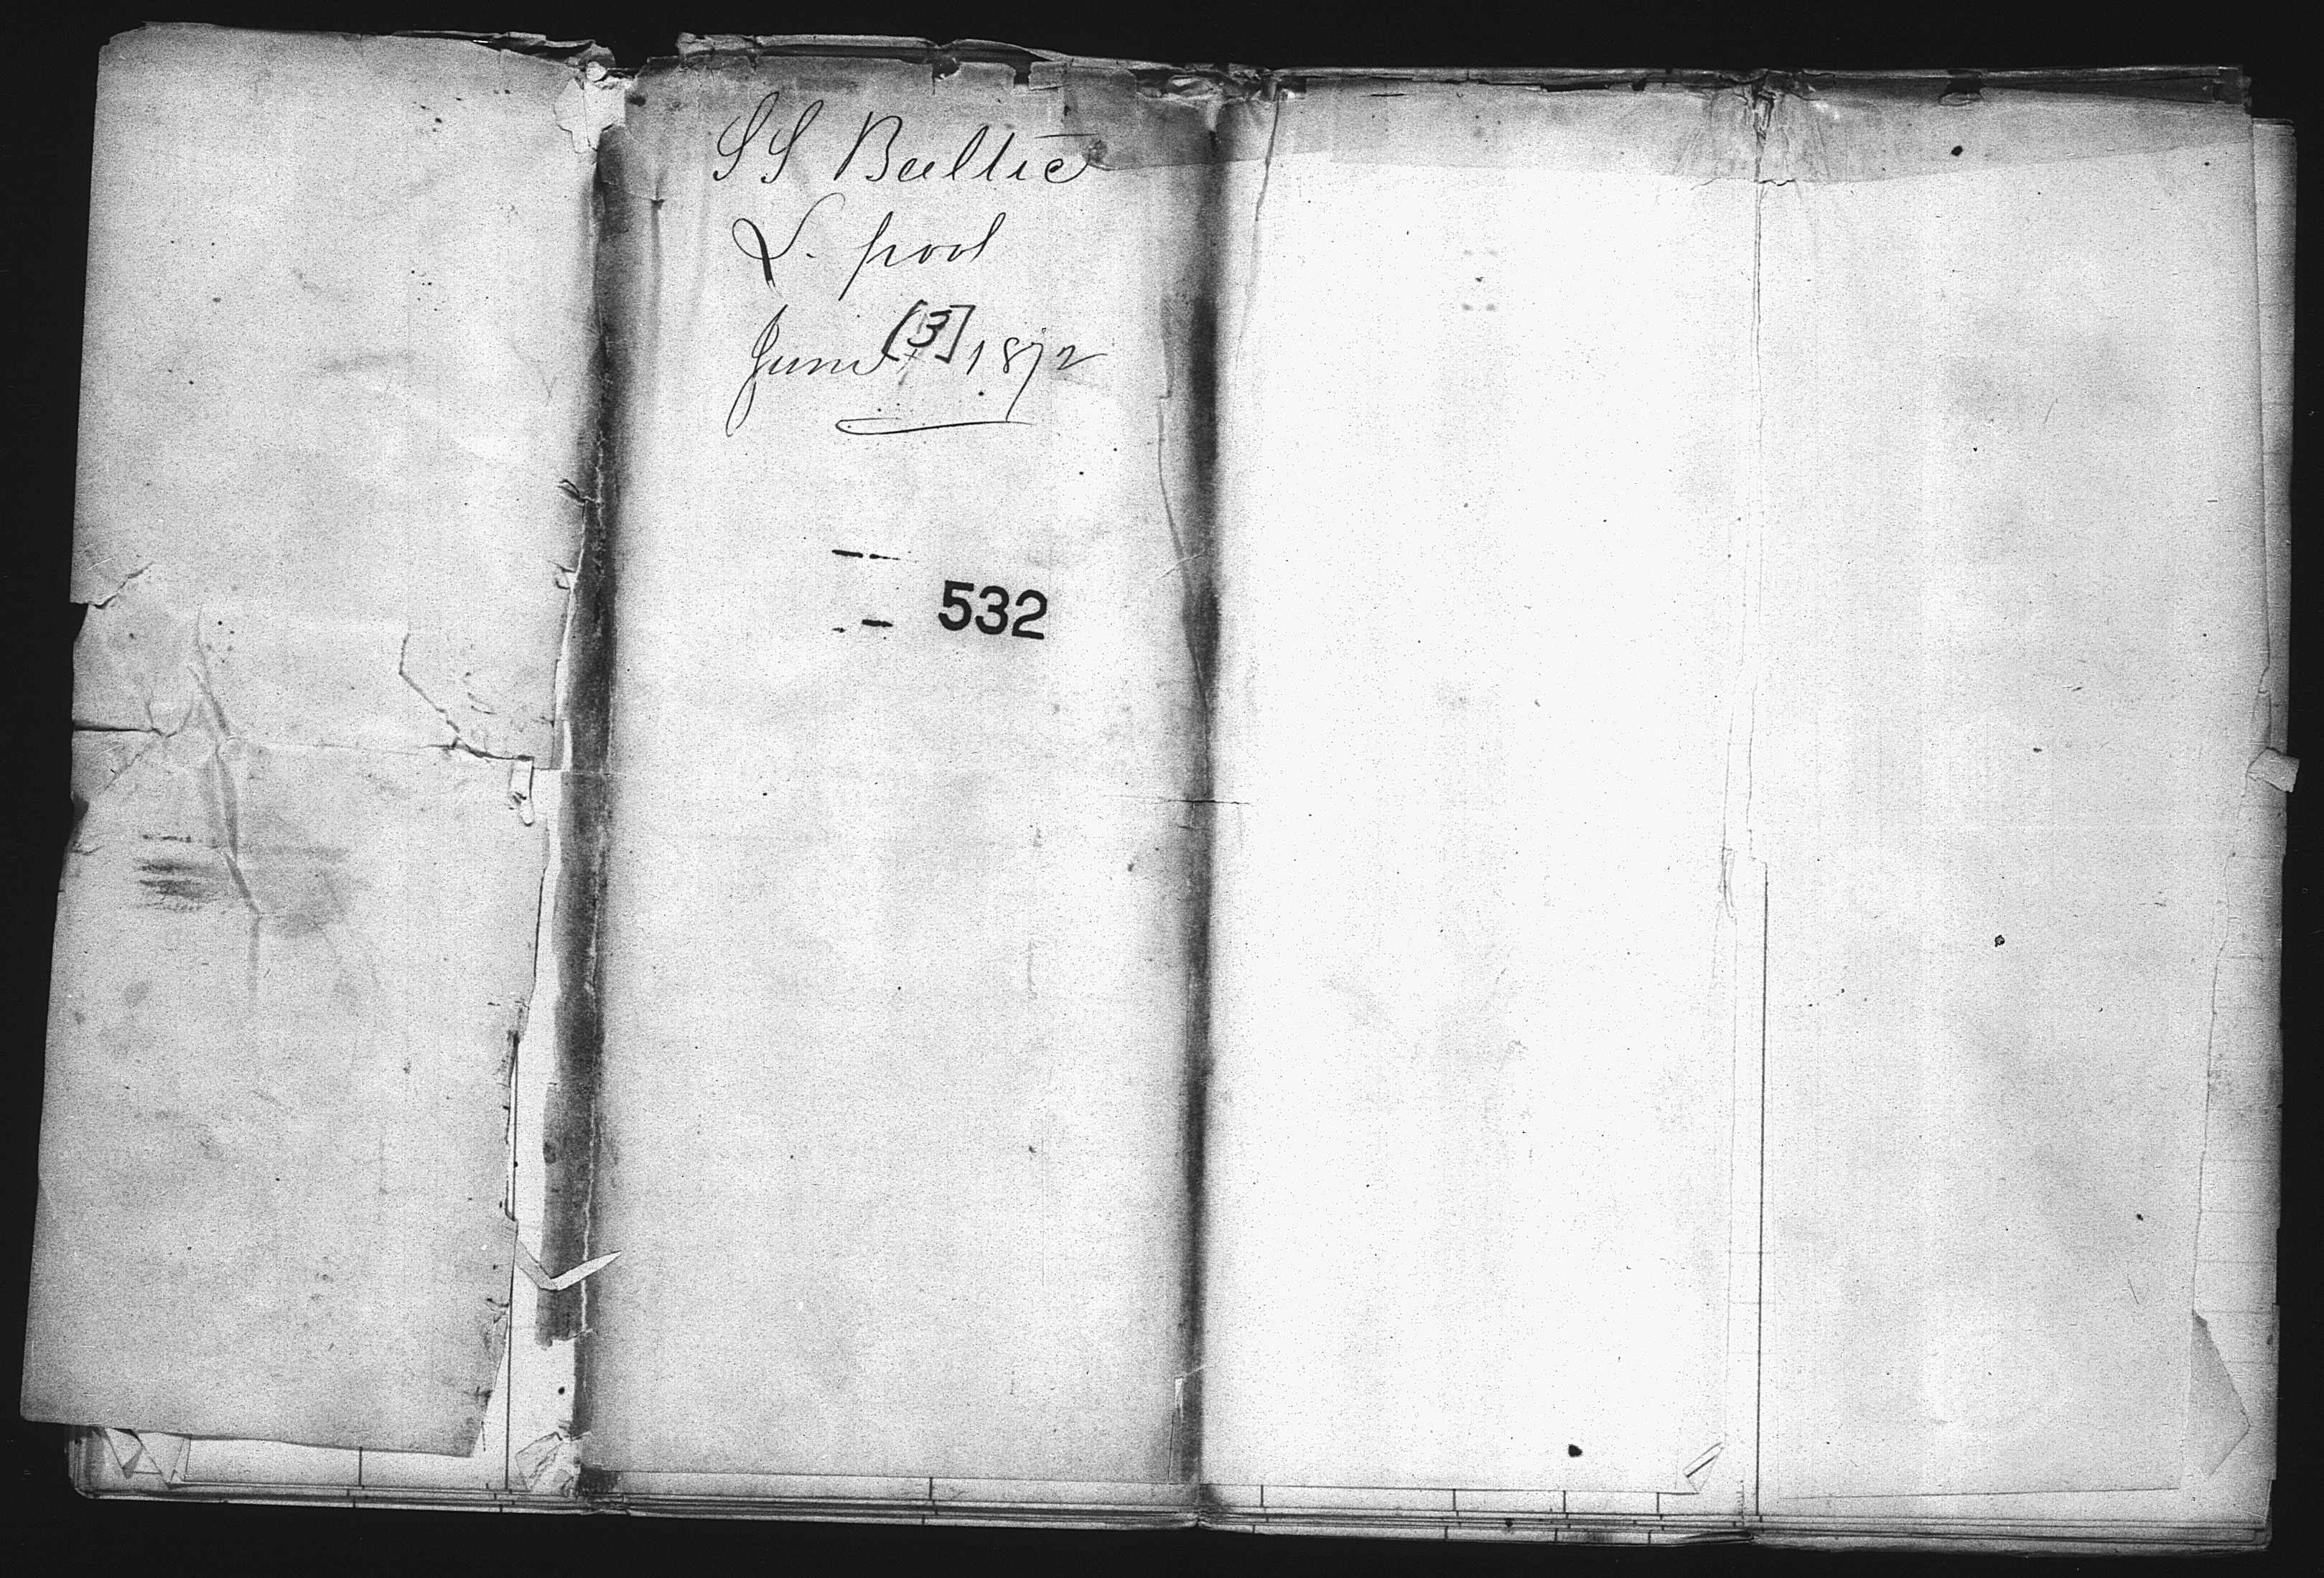 SS Baltic
L. pool
June [3] 1872
532